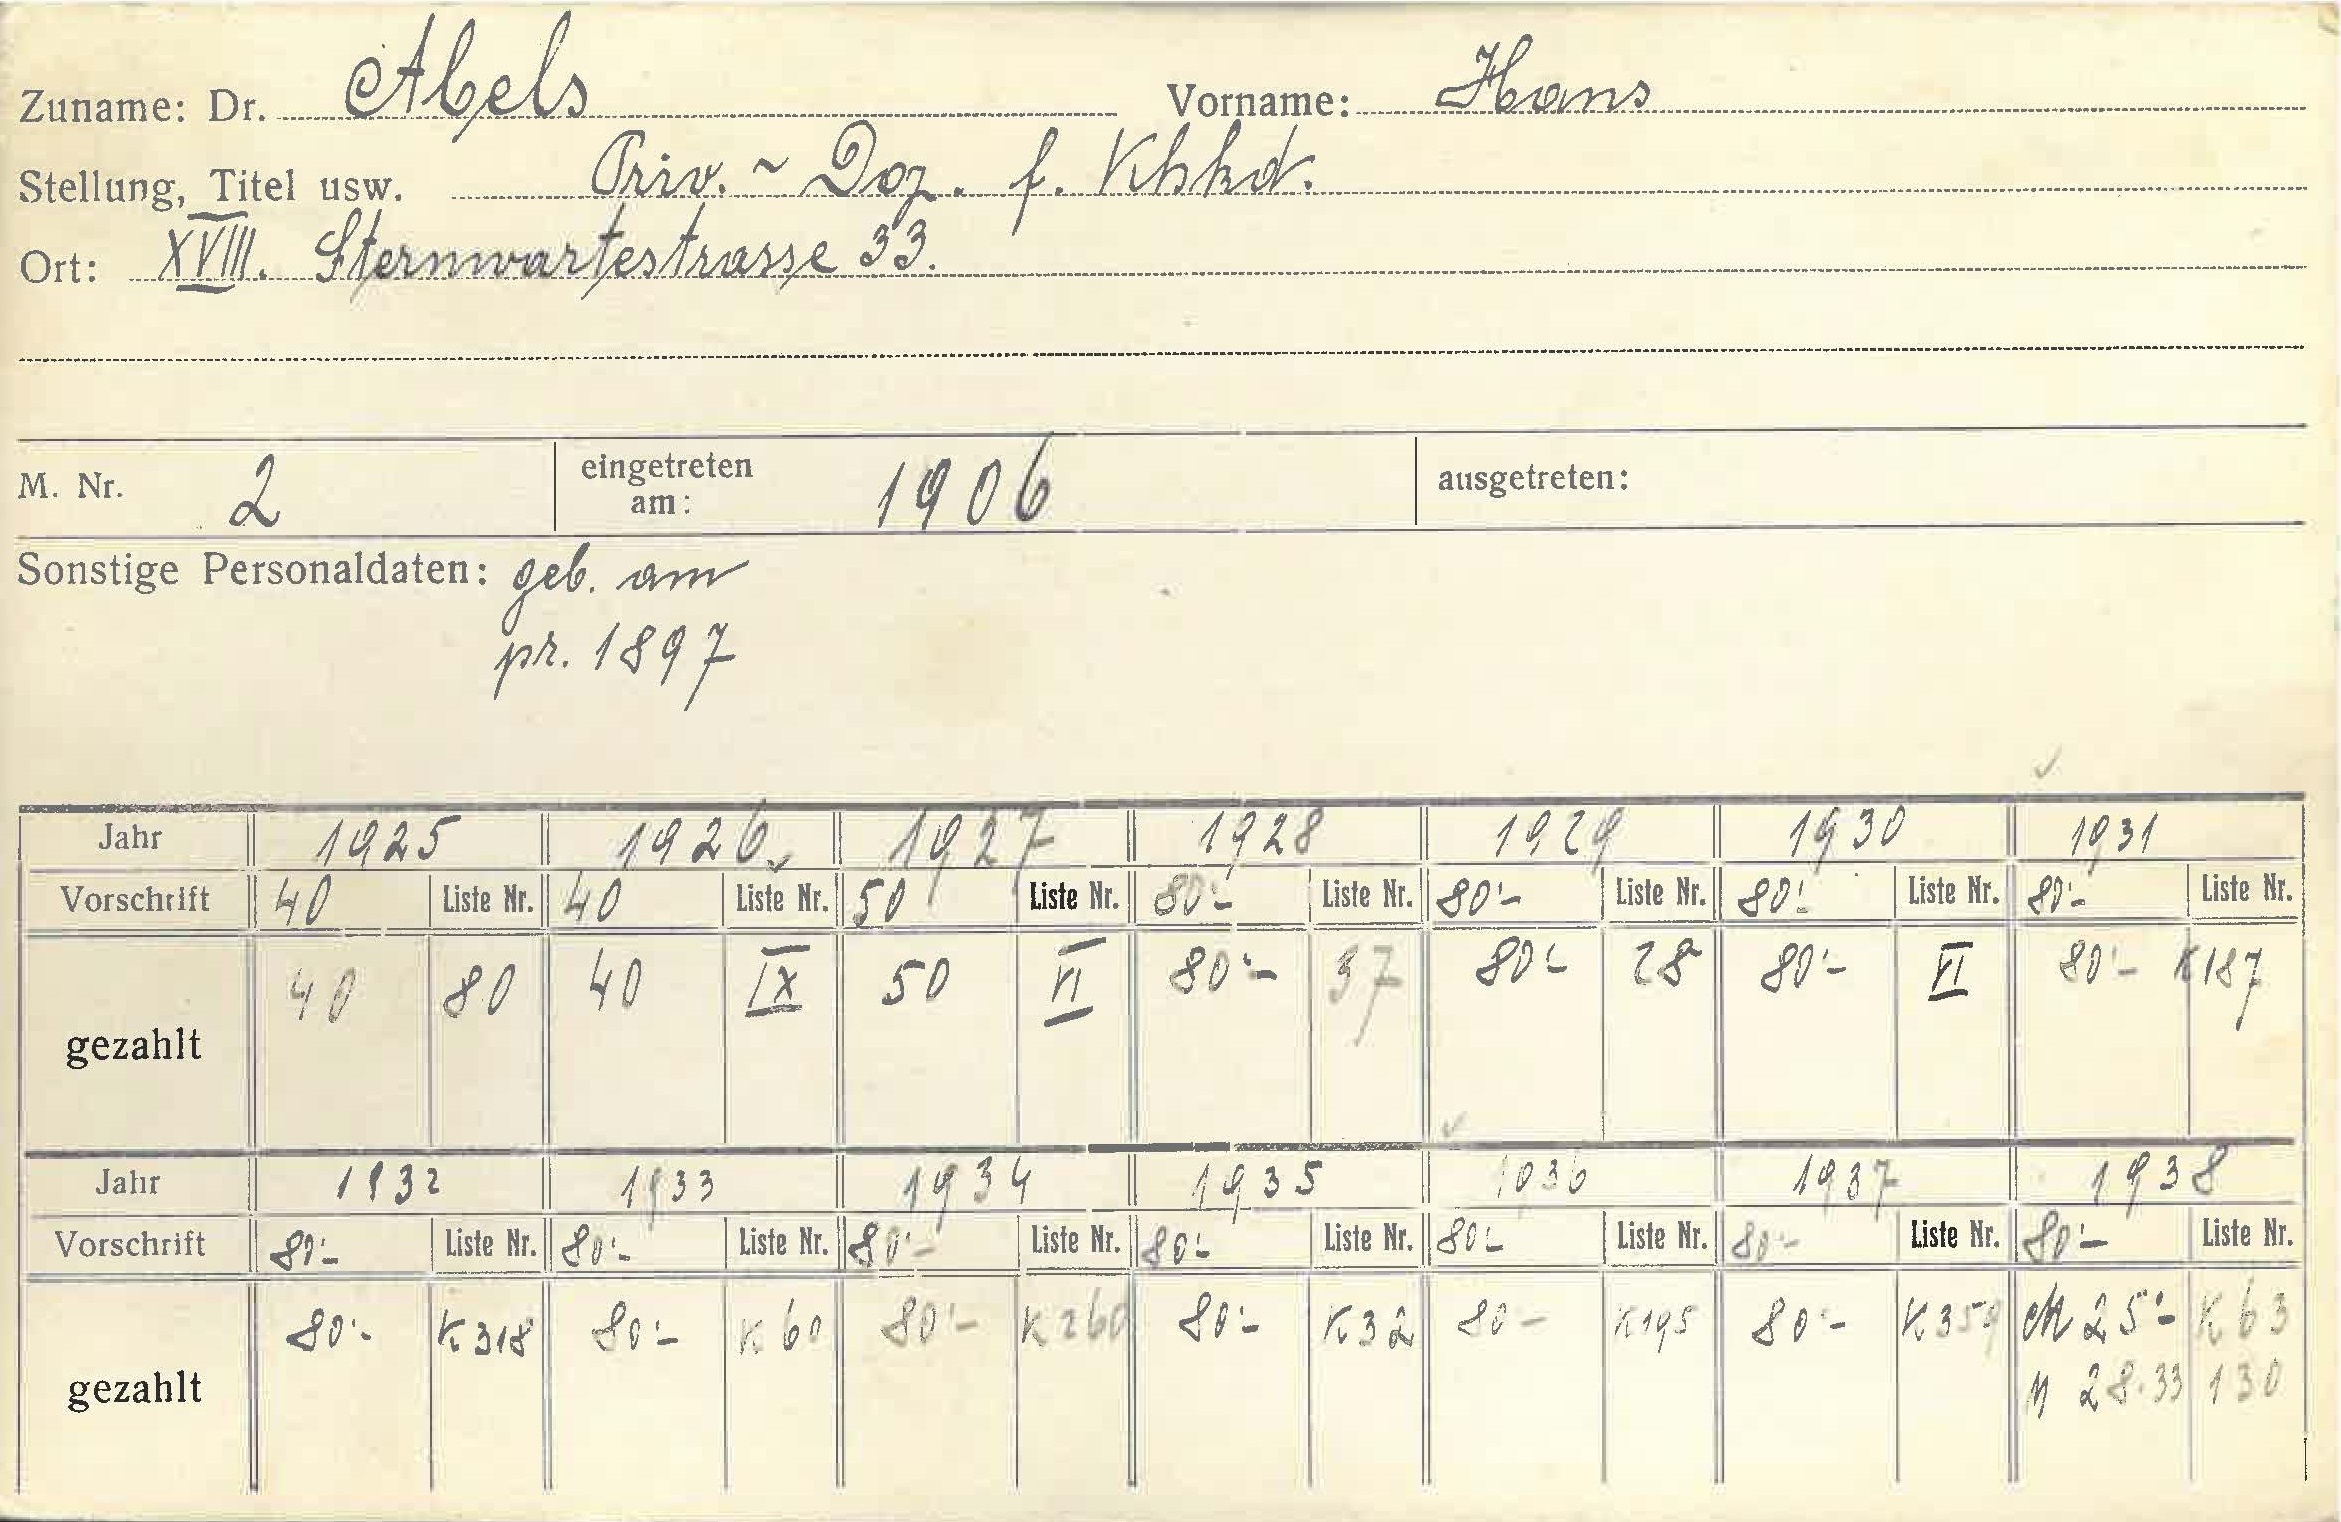 Zuname: Dr. Abels Vorname: Hans
Stellung, Titel usw. Priv. ~ Doz. f. Khkd.
Ort: XVIII. Sternwartestrasse 33.
M. Nr. 2 eingetreten am: 1906 ausgetreten:
Sonstige Personaldaten: geb. am
pr. 1897
Jahr 1925 1926 1927 1928 1929 1930 1931
Vorschrift 40 Liste Nr. 40 Liste Nr. 50 Liste Nr. 80'- Liste Nr. 80'- Liste Nr. 80'- Liste Nr. 80'- Liste Nr.
gezahlt 40 80 40 IX 50 VI 80'- 37 80'- 28 80'- VI 80'- K187
Jahr 1932 1933 1934 1935 1936 1937 1938
Vorschrift 80'- Liste Nr. 80'- Liste Nr. 80'- Liste Nr. 80'- Liste Nr. 80'- Liste Nr. 80'- Liste Nr. 80'- Liste Nr.
gezahlt 80'- K318 80'- K60 80'- K260 80'- K32 80- K195 80'- K359 25'- K63
28.33 130